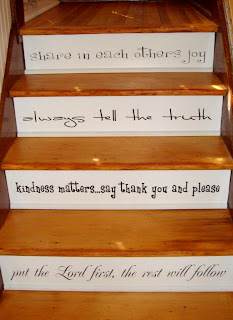 share in each others joy
always tell the truth
kindness matters...say thank you and please
put the Lord first, the rest will follow